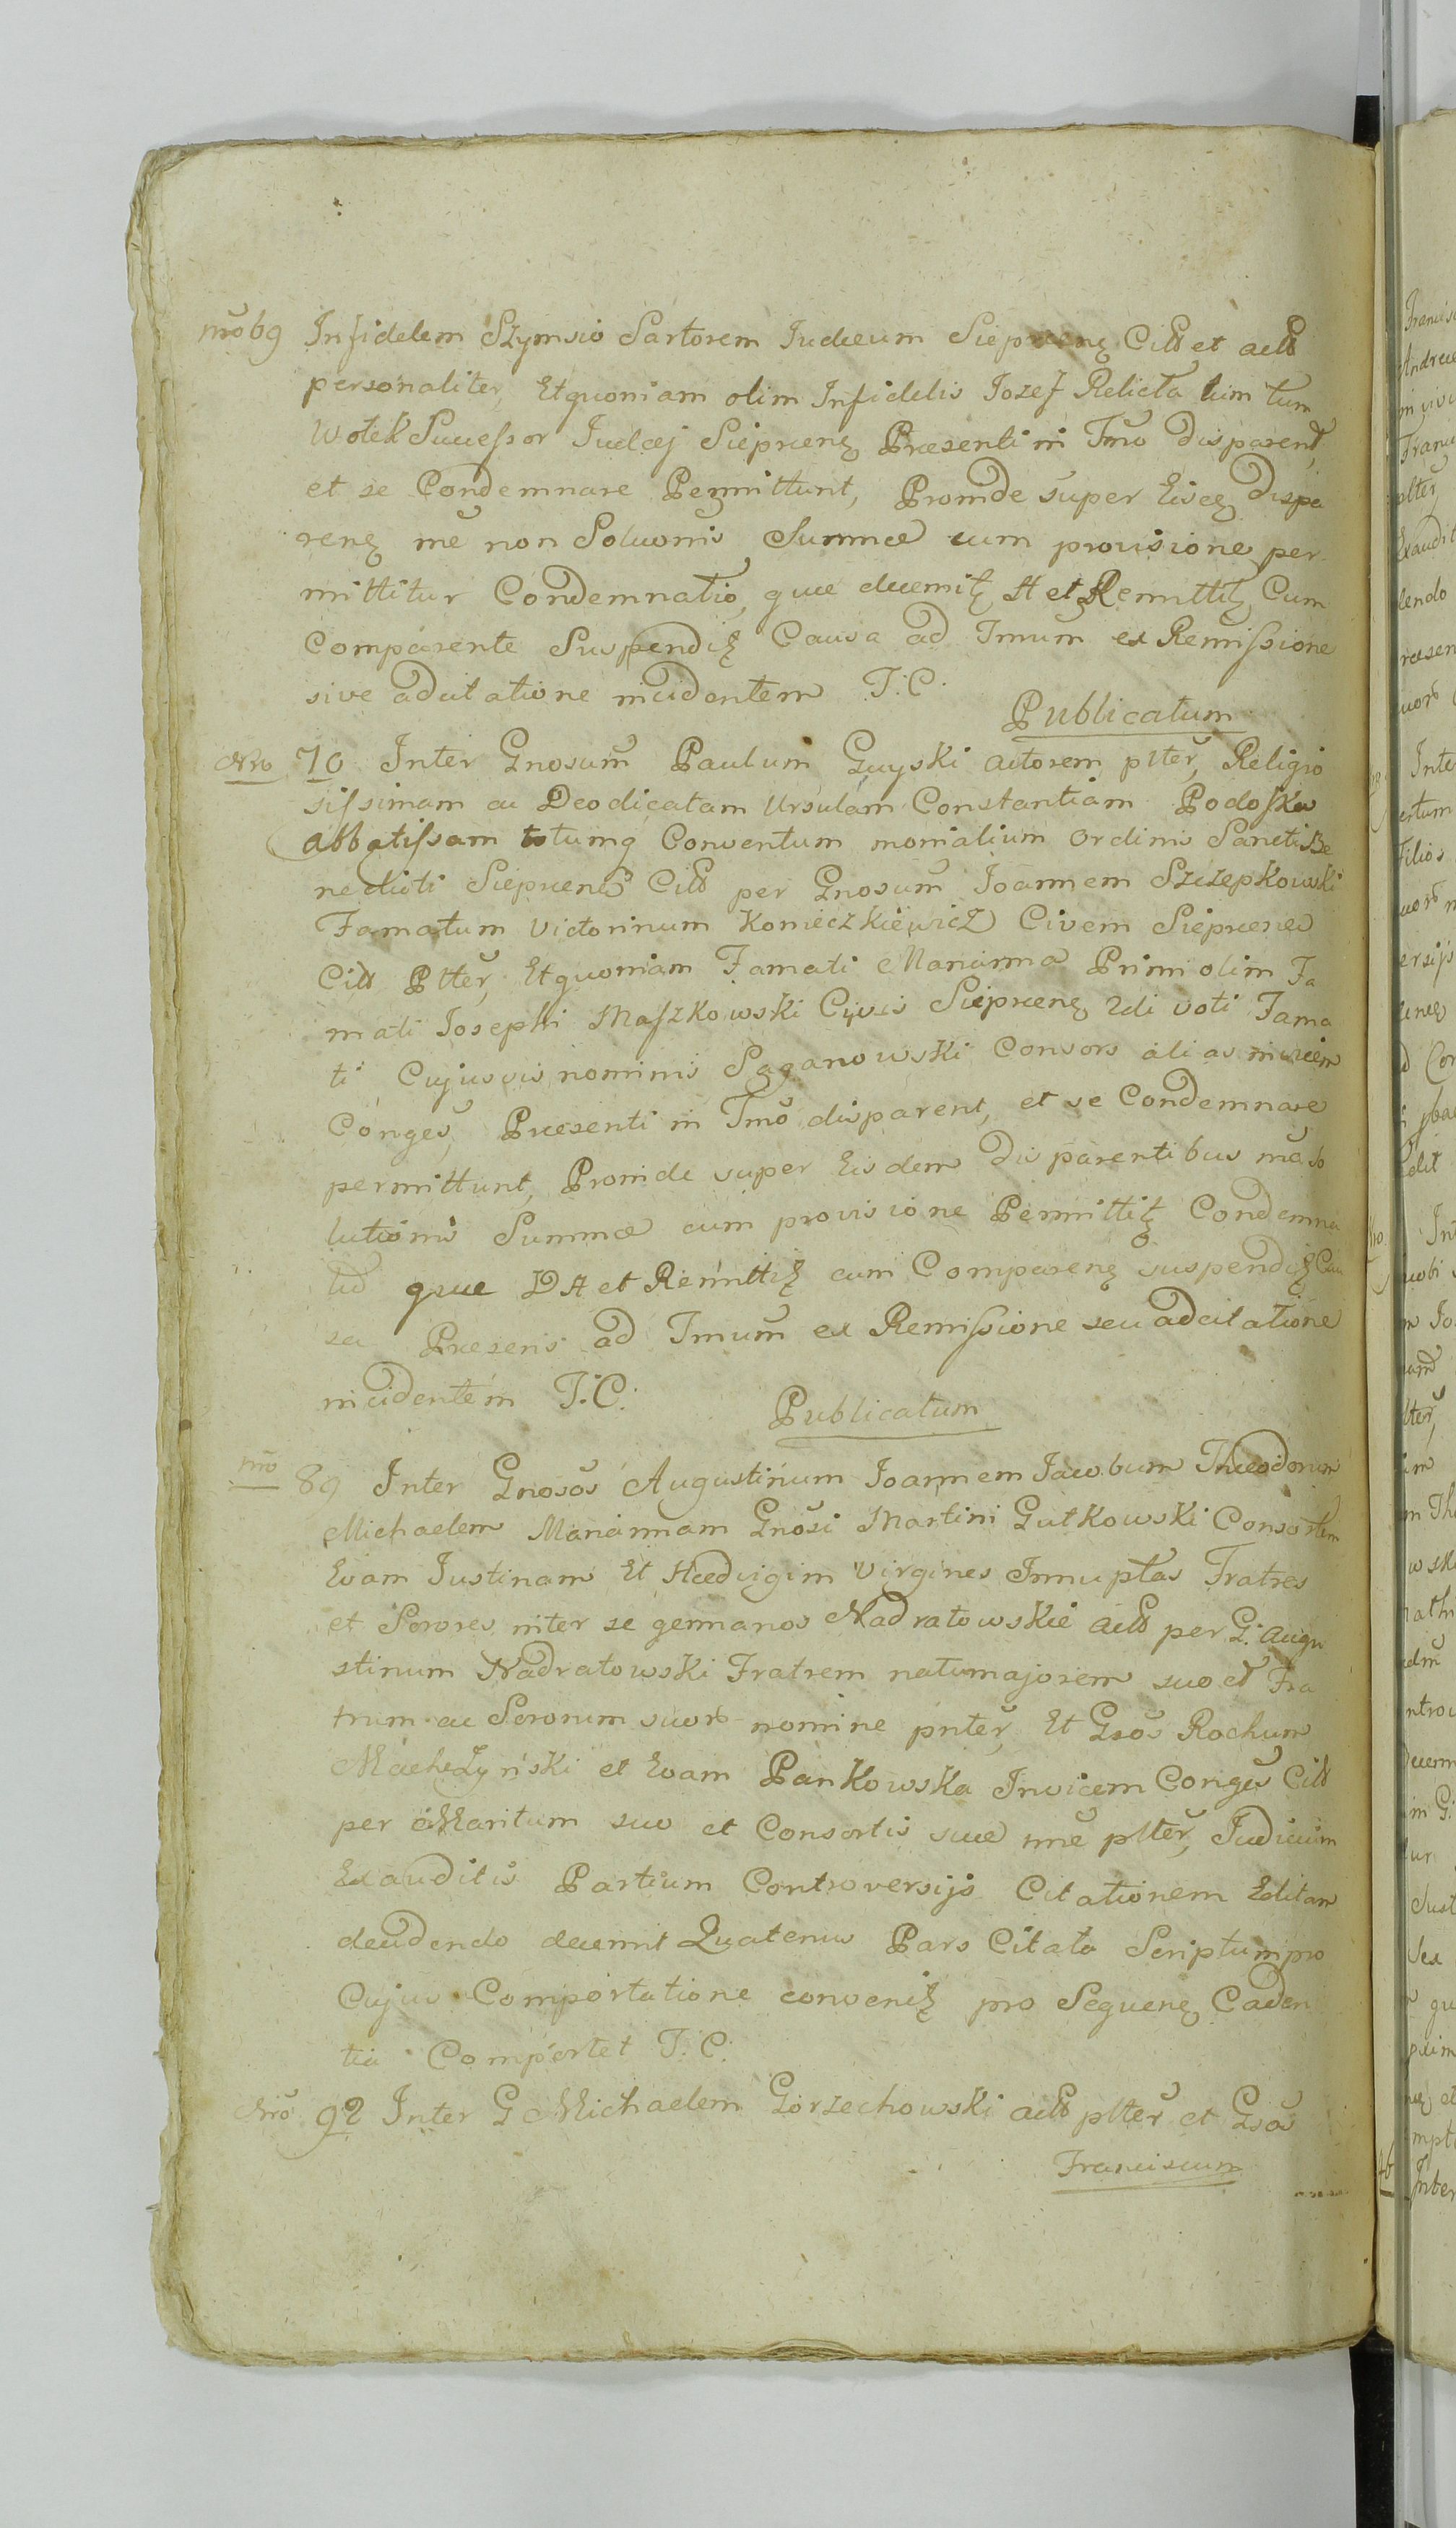 nro 69 Infidelem Szymsio Sartorem Judæum Siepræng Citt et actt
personaliter, Et quoniam olim Infidelis Jozef Relicta tum tum
Wolek Sucessor Judæj Siepræng Præsenti in Tmo disparent,
et se Condemnare Permittunt, Proinde super Eisdg dispa
reng me non Soluonis Summæ cum provisione per
mittitur Condemnatio, quæ decernitz H et Remittitz Cum
comparente Suspenditz Causa ad Tmum ex Remissione
sive adcitatione incidentem T: C.
Publicatum
Nro 70 Inter Gnosum Paulum Guyski actorem plter, Religio
sissimam ac Deo dicatam Ursulam Constantiam Podoska
Abbatissam totumq Conventum monialium ordinis Sancti Be
nedicti Siepræng Citt per Gnosum Joannem Szczepkowski
Famatum Victorinum Konieczkiewicz Civem Siepræng
Citt Plter, Et quoniam Famati Marianna Primi olim Fa
mati Josephi Maszkowski Cijvis Siepræng 2di voti Fama
ti Cujusvis nominis Paganowski Consors alias invicem
Conges, Præsenti in Tmo disparent, et se Condemnare
permittunt, Proinde super Eisdem disparentibus me so
lutionis Summæ cum provisione Permittitz Condemna
tio quæ DH et Remittitz cum Compareng suspenditz Cau
sa Præsens ad Tmum ex Remissione seu adcitatione
incidentem T: C:
Publicatum
nro 89 Inter Gnosos Augustinum Joannem Jacobum Theodorum
Michaelem Mariannam Gnosi Martini Gutkowski Consortem
Evam Justinam Et Hædvigim Virgines Innuptas Fratres
et Sorores inter se germanos Nadratowskie actt per G: Augu
stinum Nadratowski Fratrem natumajorem suo et Fra
trum ac Sororum suorb nomine pnter, Et Gsos Rochum
Machczyński et Evam Pankowska Invicem Conges Citt
per Maritum suo et Consortis suæ nne plter, Judicium
Exauditis Partium Controversijs Citationem Editam
decidendo decernit Quatenus Pars Citata Scriptum pro
Cujus Comportatione convenitz pro Sequeng Caden
tia Comportet T: C:
Nro 92 Inter G Michaelem Gorzechowski actt plter et Gsos
Franciscum